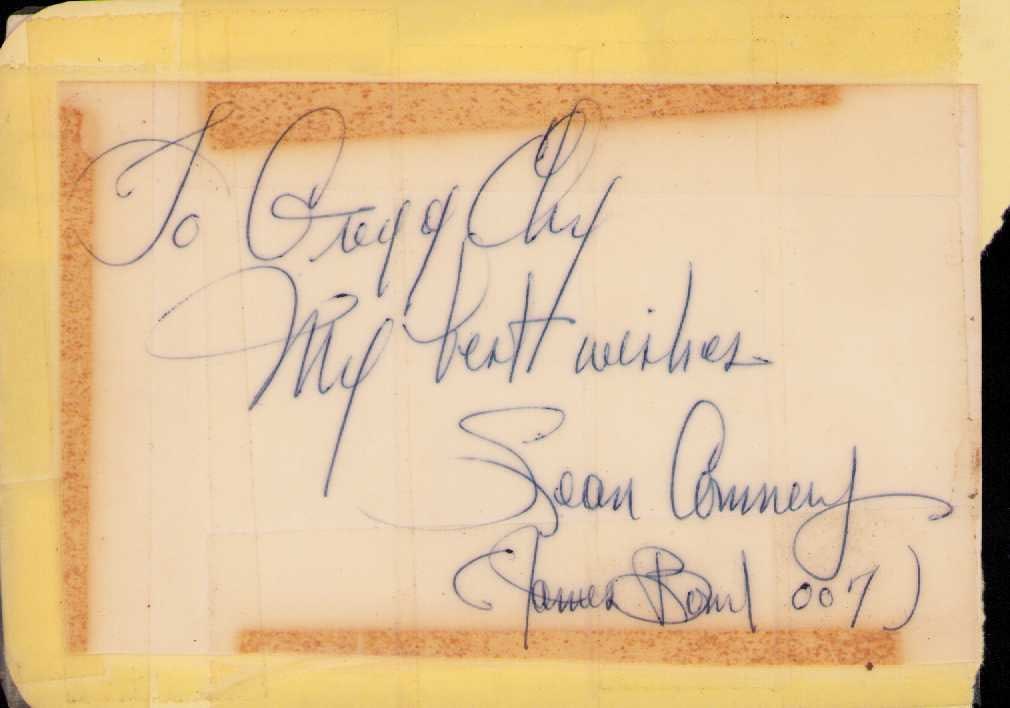 To Gregg Chy
My best wishes
Sean Connery
(James Bond 007)